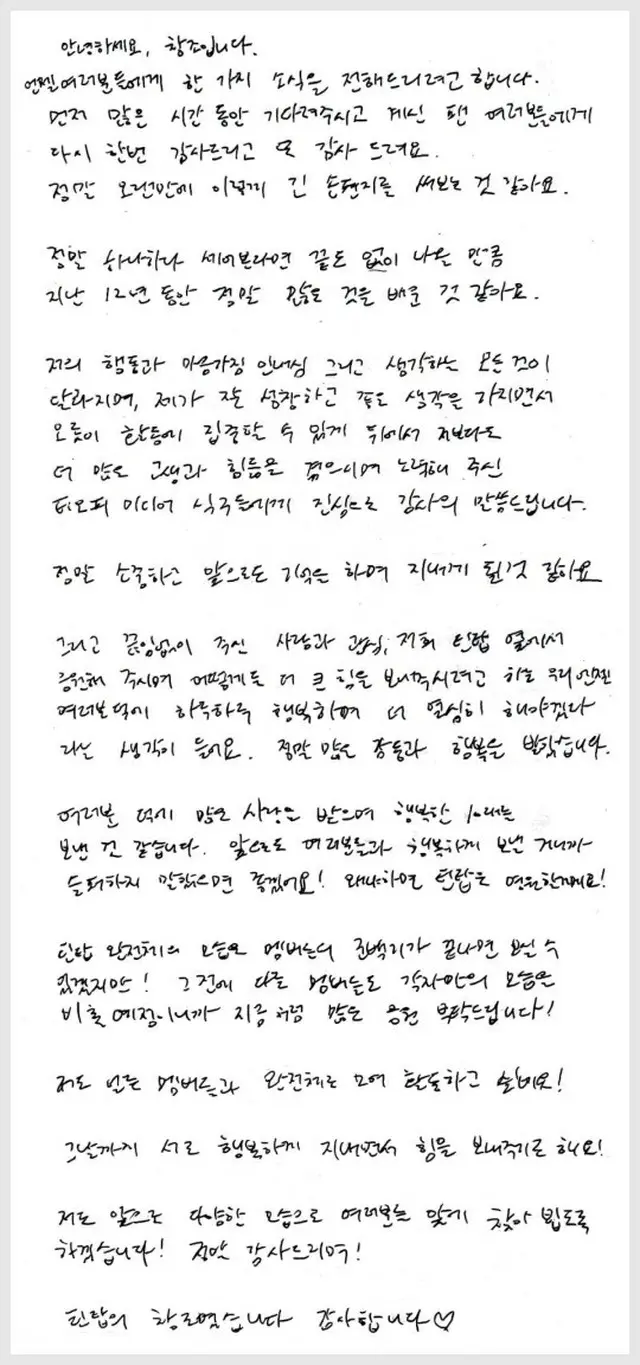 안녕하세요, 창조입니다.
엔젤여러분들에게 한 가지 소식을 전해드리려고 합니다.
먼저 많은 시간 동안 기다려주시고 계신 팬 여러분들에게
다시 한번 감사드리고 또 감사 드려요.
정말 오랜만에 이렇게 긴 손편지를 써보는 것 같아요.
정말 하나하나 세어본다면 끝도 없이 나올 만큼
지난 12년 동안 정말 많은 것을 배운 것 같아요.
저의 행동과 마음가짐 인내심 그리고 생각하는 모든 것이
달라지며, 제가 잘 성장하고 좋은 생각을 가지면서
오롯이 활동에 집중할 수 있게 뒤에서 저보다도
더 많은 고생과 힘듦을 겪으시며 노력해 주신
티오피 미디어 식구들에게 진심으로 감사의 말씀드립니다.
정말 소중하고 앞으로도 기억을 하며 지내게 될것 같아요
그리고 끊임없이 주신 사랑과 관심, 저희 틴탑 옆에서
응원해 주시며 어떻게든 더 큰 힘을 보내주시려고 하는 우리 엔젤
여러분덕에 하루하루 행복하며 더 열심히 해야겠다
라는 생각이 들어요. 정말 많은 감동과 행복을 받았습니다.
여러분 덕에 많은 사랑을 받으며 행복한 10대를
보낸 것 같습니다. 앞으로도 여러분들과 행복하게 보낼 거니까
슬퍼하지 말았으면 좋겠어요! 왜냐하면 틴탑은 영원한거예요!
틴탑 완전체의 모습은 멤버들의 군백기가 끝나면 보실 수
있겠지만! 그 전에 다른 멤버들도 각자만의 모습을
비출 예정이니까 지금처럼 많은 응원 부탁드립니다!
저도 빨리 멤버들과 완전체로 모여 활동하고 싶네요!
그날까지 서로 행복하게 지내면서 힘을 보내주기로 해요!
저도 앞으로 다양한 모습으로 여러분들 앞에 찾아 뵙도록
하겠습니다! 정말 감사드리며!
틴탑의 창조였습니다 감사합니다♡